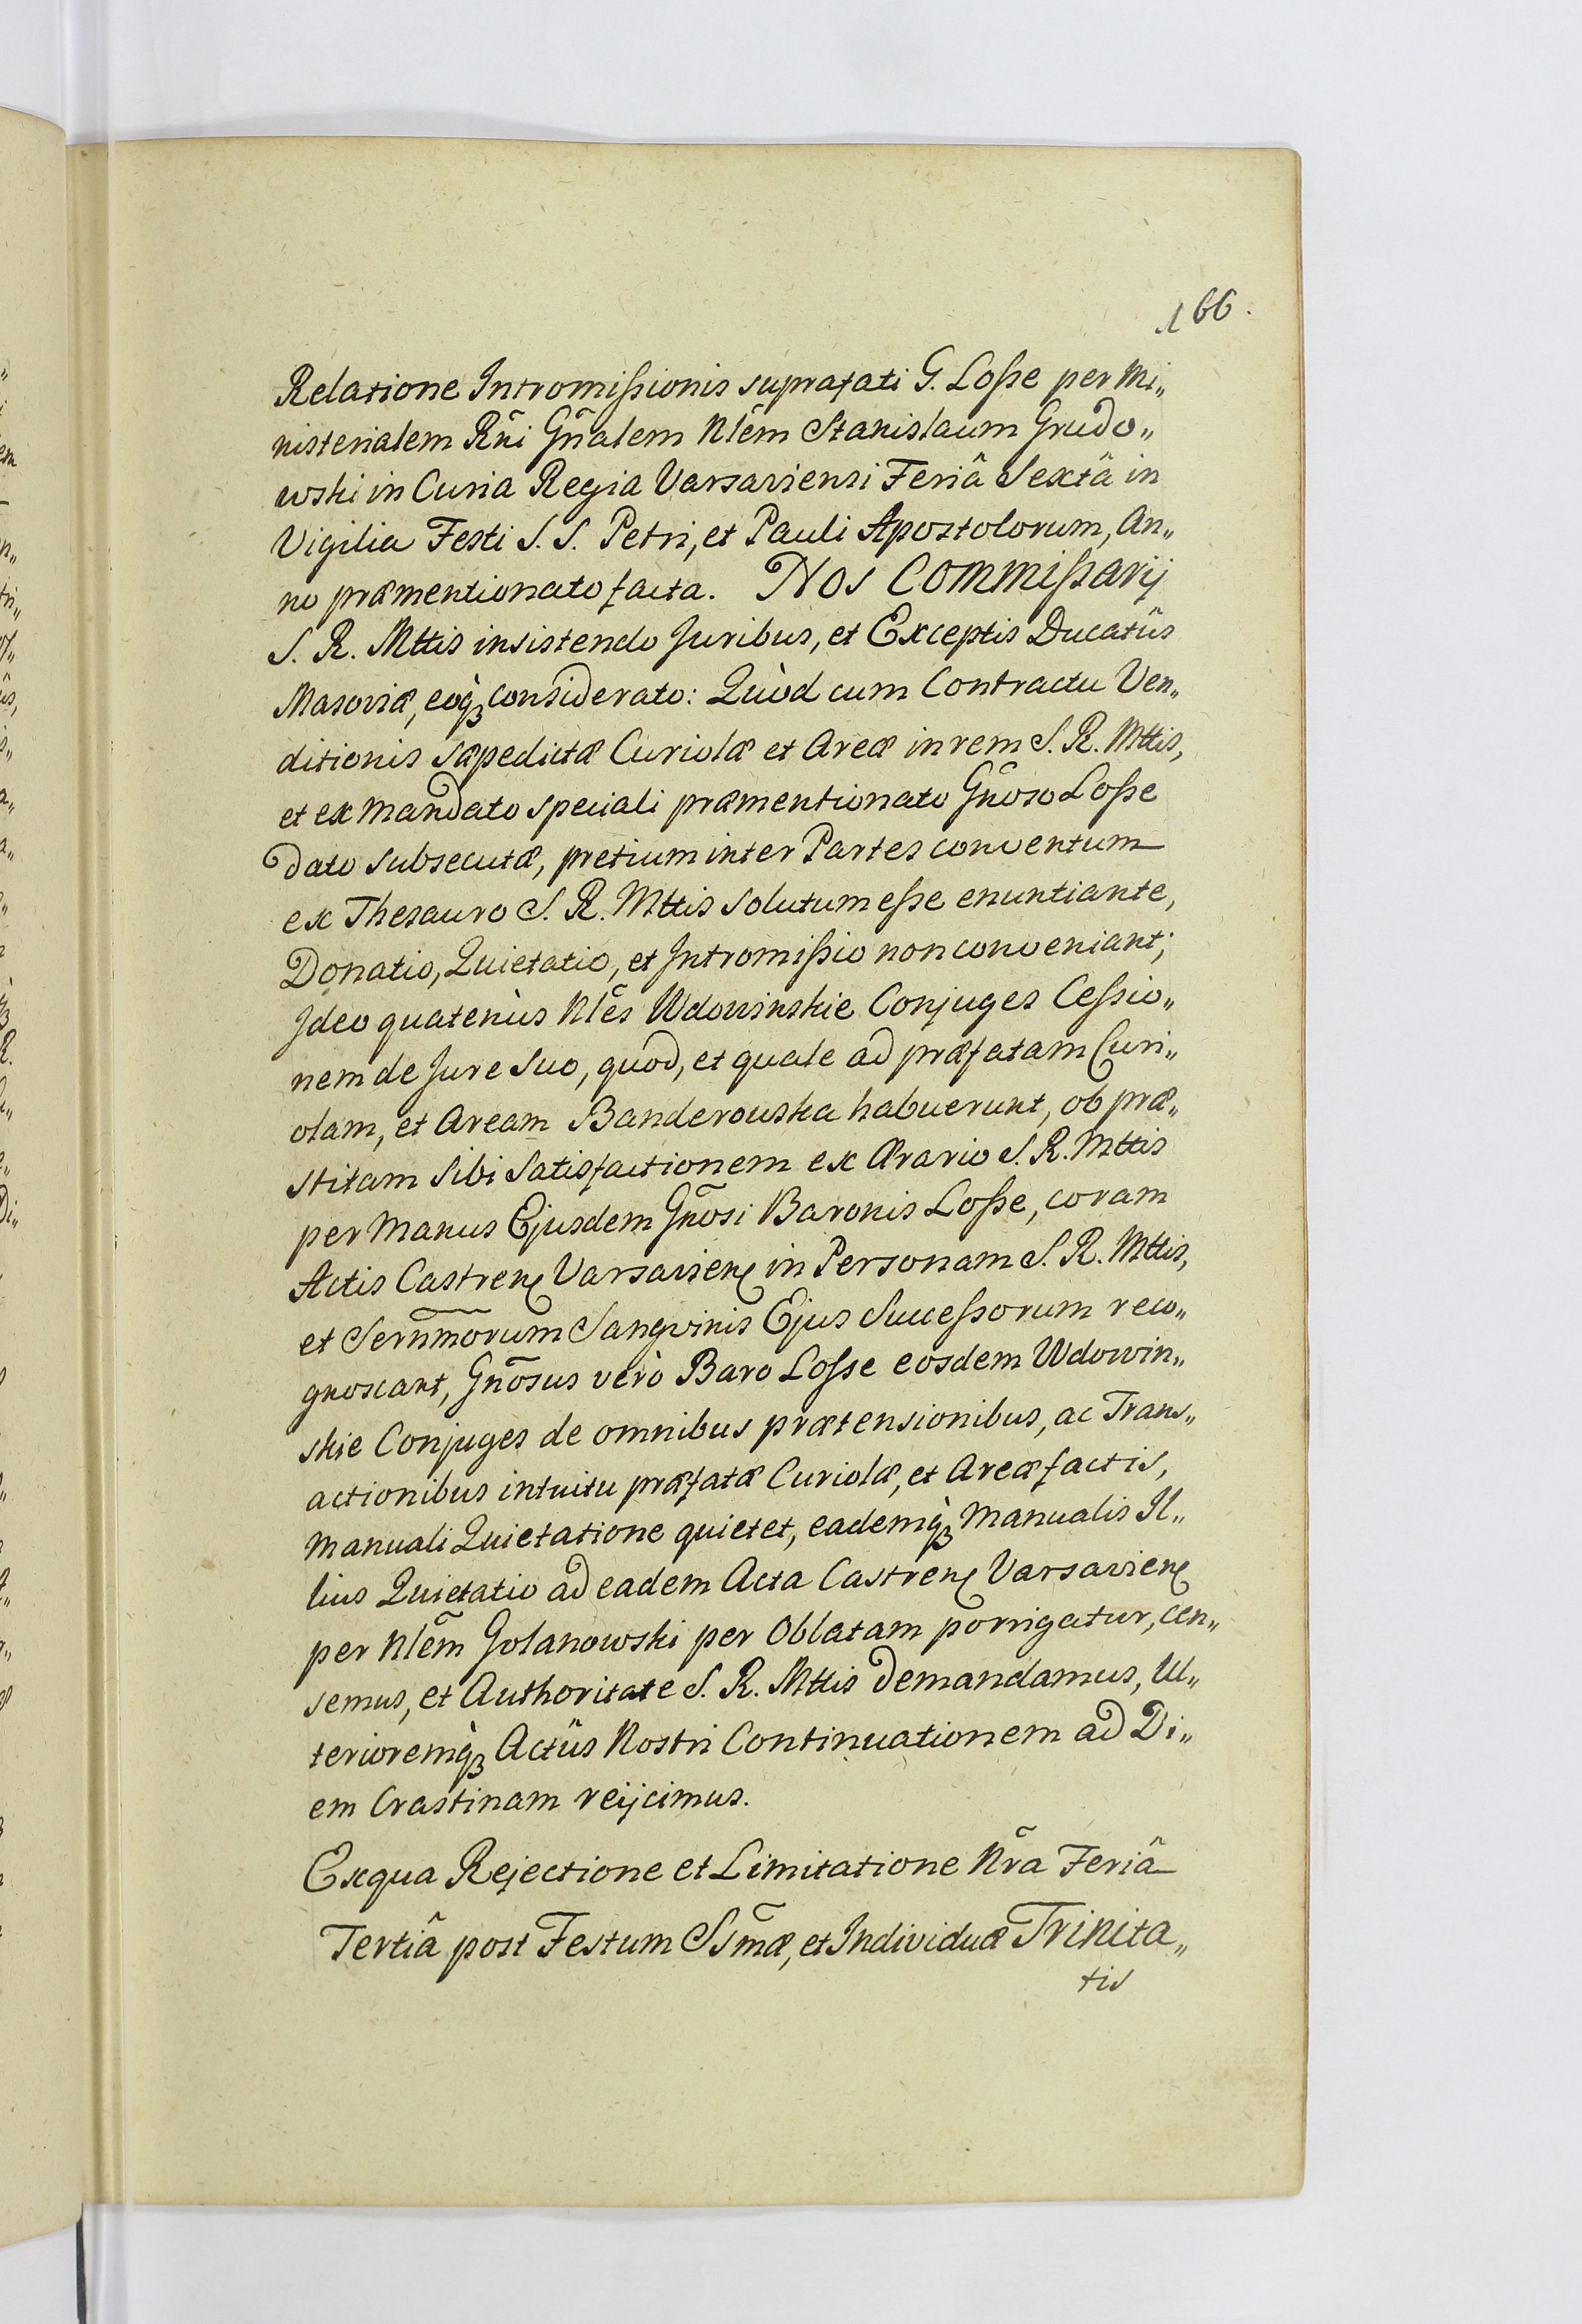 166.
Relatione Intromissionis suprafati G. Losse per Mi„
nisterialem Rñi Gñalem Nlẽm Stanislaum Grudo„
wski in Curia Regia Varsaviensi Feriâ Sextâ in
Vigilia Festi S. S. Petri, et Pauli Apostolorum, An„
no præmentionato facta. Nos Commissarij
S. R. Mttis insistendo Juribus, et Exceptis Ducatûs
Masoviæ, eoq́ꝫ considerato: Quòd cum Contractu Ven„
ditionis sæpedictæ Curiolæ et Areæ in rem S. R. Mttis,
et ex Mandato speciali præmentionato Gñoso Losse
dato subsecutæ, pretium inter Partes conventum
ex Thesauro S. R. Mttis solutum esse enuntiante,
Donatio, Quietatio, et Intromissio non conveniant;
Ideo quatenùs Nlẽs Wdowinskie Conjuges Cessio„
nem de Jure suo, quod, et quale ad præfatam Curi„
olam, et Aream Banderouska habuerunt, ob præ„
stitam sibi satisfactionem ex Ærario S. R. Mttis
per Manus Ejusdem Gñosi Baronis Losse, coram
Actis Castreñ Varsavieñ in Personam S. R. Mttis,
et Sernm̃orum Sangvinis Ejus Successorum reco„
gnoscant, Gñosus verò Baro Losse eosdem Wdowin„
skie Conjuges de omnibus prætensionibus, ac Trans„
actionibus intuitu præfatæ Curiolæ, et Areæ factis,
Manuali Quietatione quietet, eademq́ꝫ Manualis Il„
lius Quietatio ad eadem Acta Castreñ Varsavieñ
per Nlẽm Golanowski per Oblatam porrigatur, cen„
semus, et Authoritate S. R. Mttis demandamus, Ul„
terioremq́ꝫ Actûs Nostri Continuationem ad Di„
em Crastinam reijcimus.
Ex qua Rejectione et Limitatione Nr̃a Feriâ
Tertiâ post Festum SSm̃æ, et Individuæ Trinita„
tis